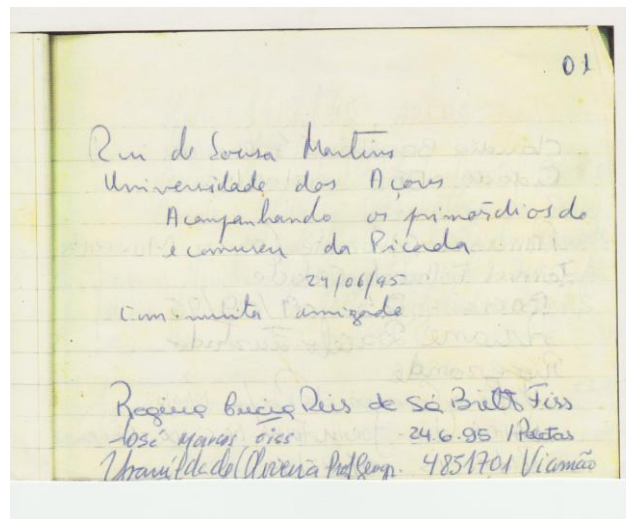 01
Rui de Sousa Martins
Universidade dos Açores
Acompanhando os primórdios do
ecomuseu da Picada
24/06/95
Com muita amizade
Regina Lucia Reis de Sá Britto Fiss
José Marcos Fiss 24.6.95 / Pelotas
de Oliveira Prof Geogr. 4851701 Viamão